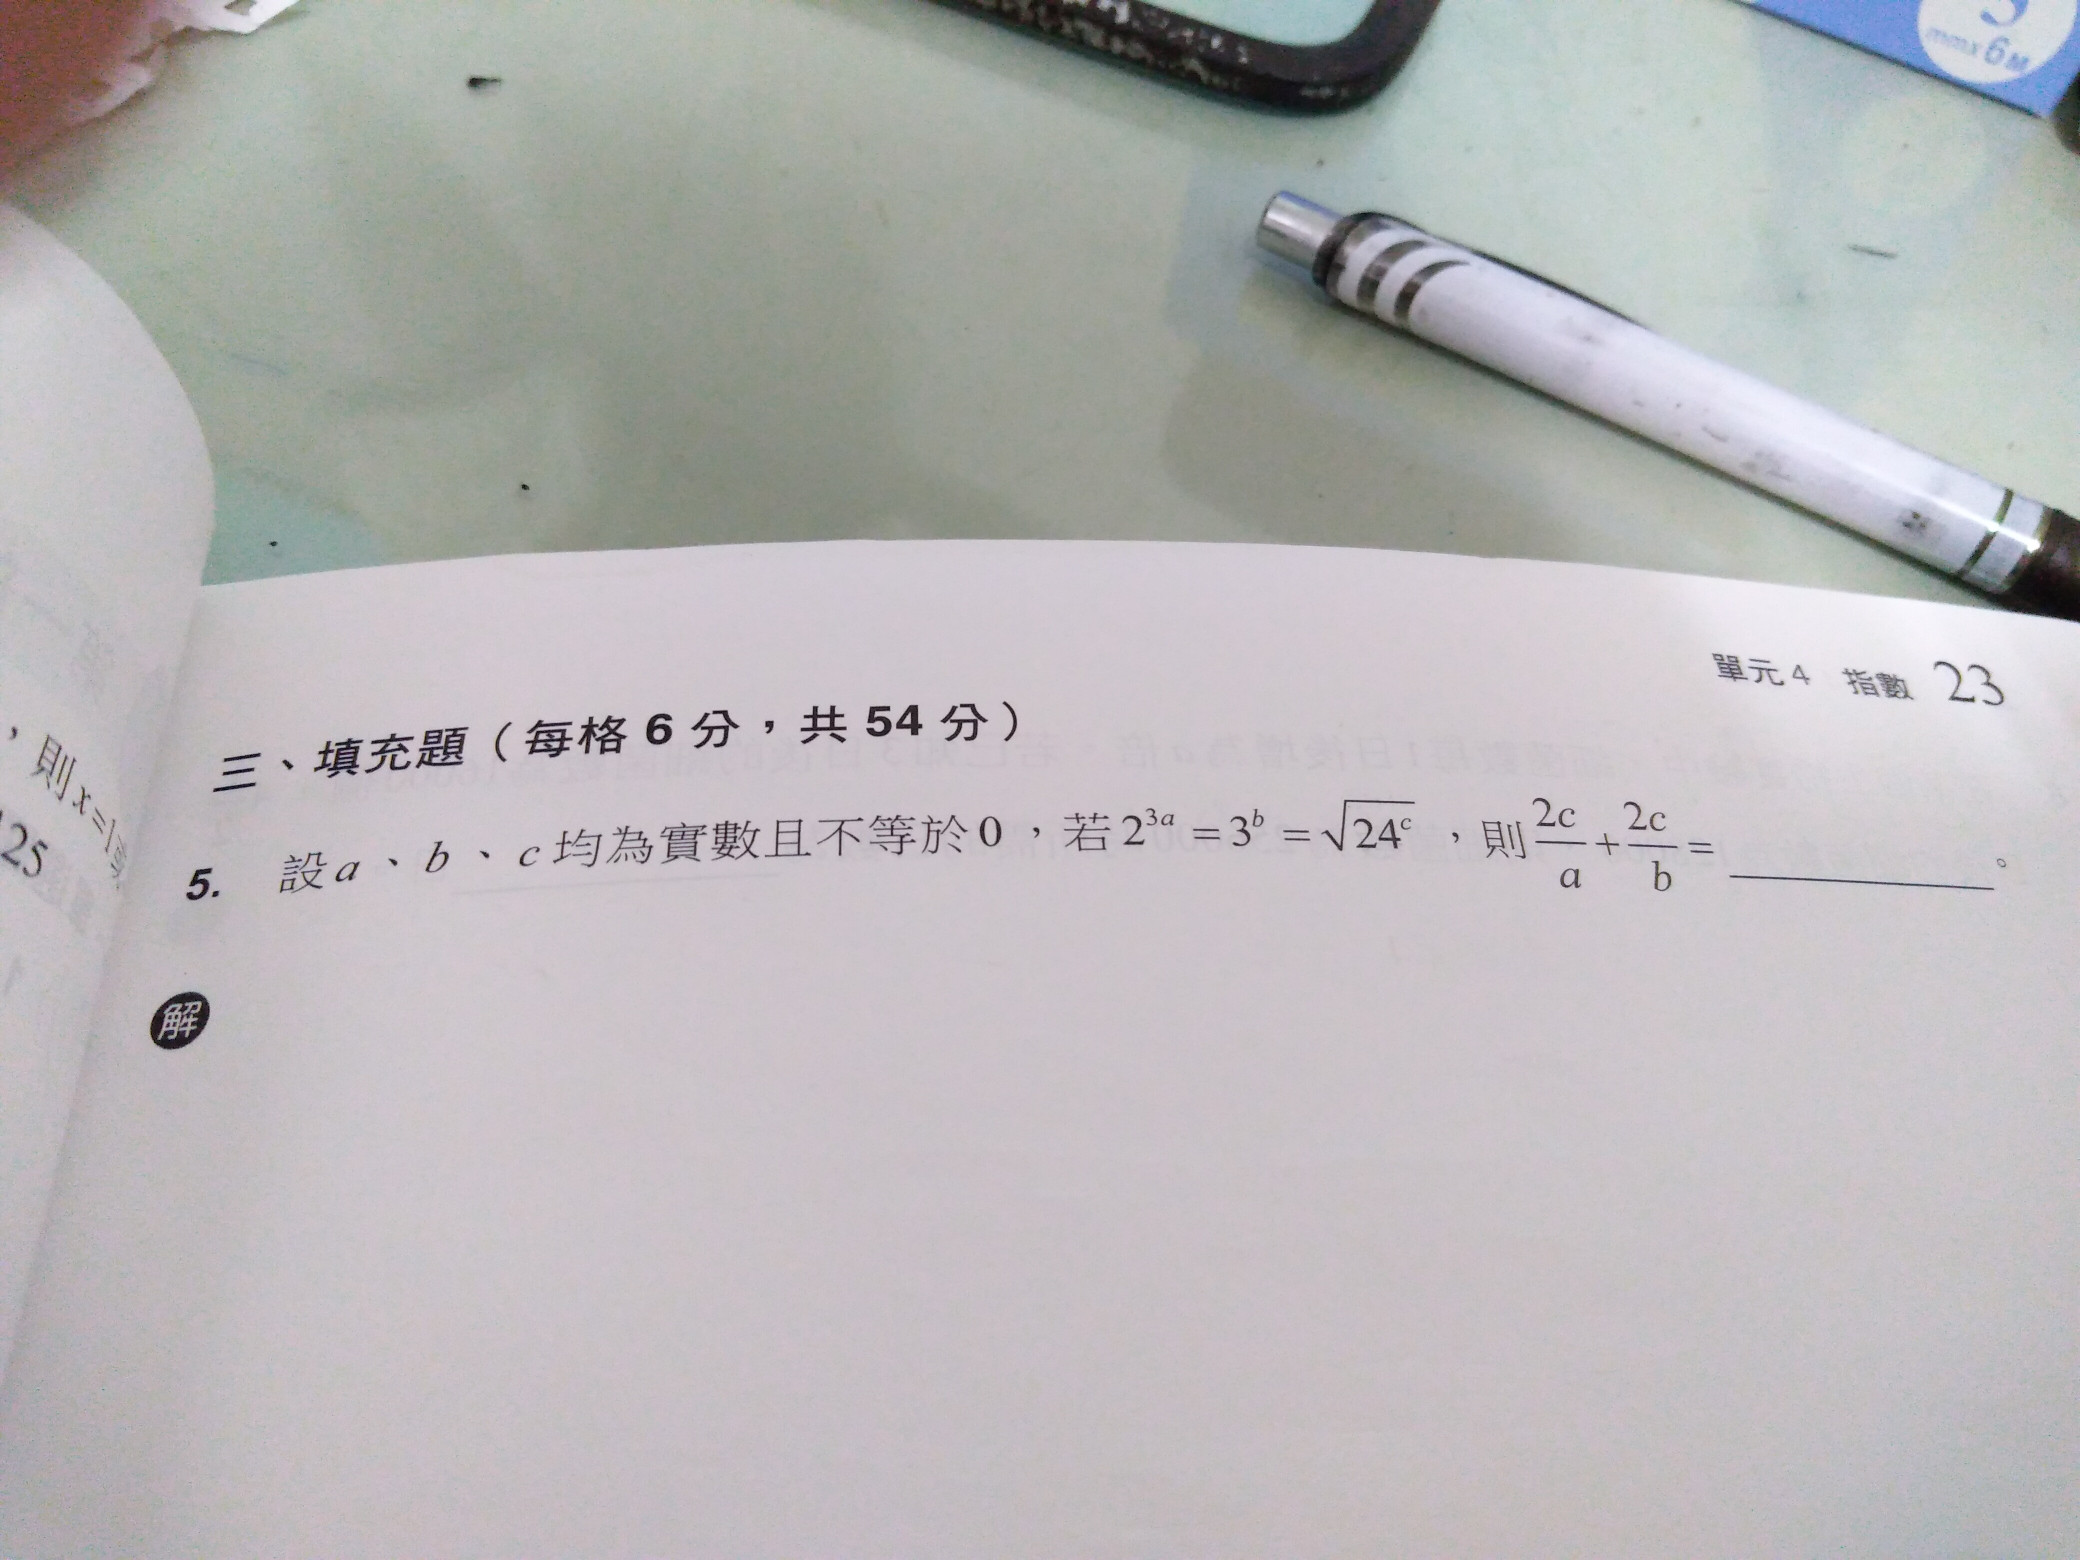 mmx6M
單元4 指數 23
三、填充題（每格6分，共54分）
5. 設a、b、c均為實數且不等於0，若2^{3a}=3^b=√24^c，則2c/a+2c/b=________。
解
，則x=
25